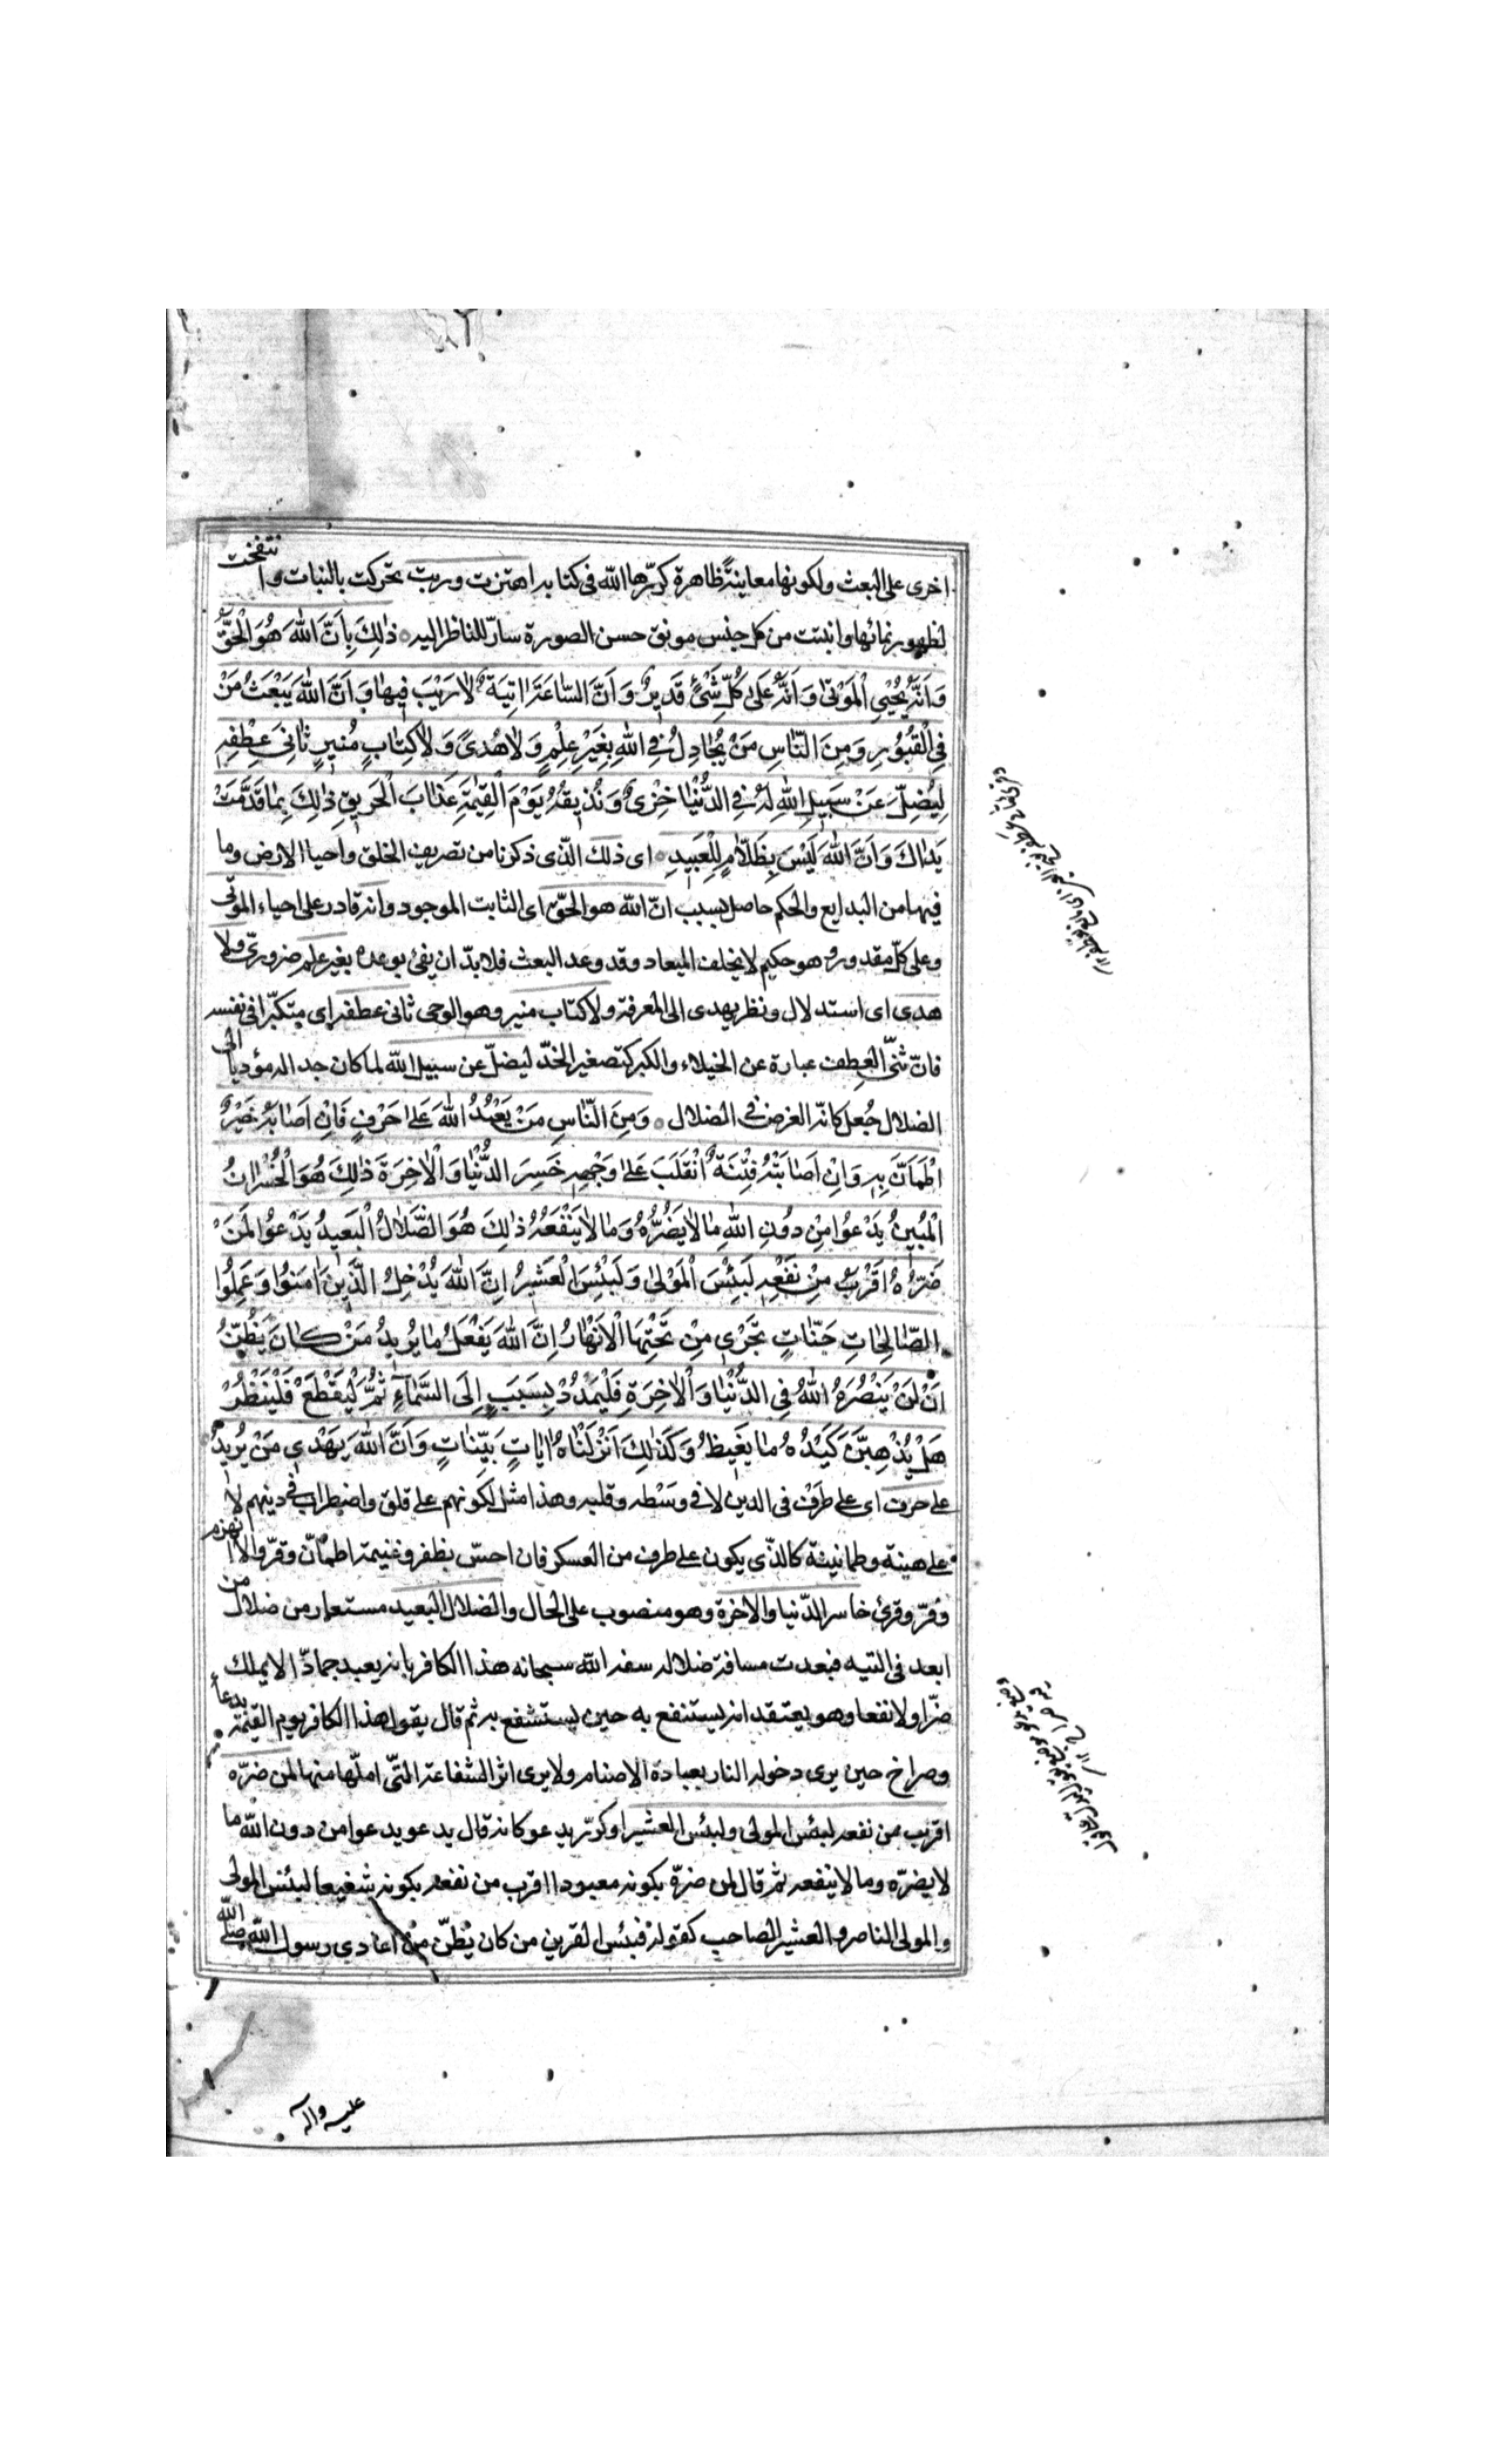 اخرى على البعث ولكونها معاينة ظاهرة كرّرها الله فى كتابه اهتزت وربت تحركت بالنبات وانتفخت
لظهور نمائها وانبتت من كل جنس مونق حسن الصورة سارّ للناظر اليه ذٰلِكَ بِاَنَّ اللّٰهَ هُوَ الْحَقُّ
وَاَنَّهُ يُحْيِي الْمَوْتٰى وَاَنَّهُ عَلٰى كُلِّ شَيْءٍ قَدِيرٌ وَاَنَّ السّٰاعَةَ اٰتِيَةٌ لٰا رَيْبَ فِيهٰا وَاَنَّ اللّٰهَ يَبْعَثُ مَنْ
فِي الْقُبُورِ وَمِنَ النّٰاسِ مَنْ يُجٰادِلُ فِي اللّٰهِ بِغَيْرِ عِلْمٍ وَلٰا هُدىً وَلٰا كِتٰابٍ مُنِيرٍ ثٰانِيَ عِطْفِهِ
لِيُضِلَّ عَنْ سَبِيلِ اللّٰهِ لَهُ فِي الدُّنْيٰا خِزْيٌ وَنُذِيقُهُ يَوْمَ الْقِيٰمَةِ عَذٰابَ الْحَرِيقِ ذٰلِكَ بِمٰا قَدَّمَتْ
يَدٰاكَ وَاَنَّ اللّٰهَ لَيْسَ بِظَلّٰامٍ لِلْعَبِيدِ اى ذلك الّذى ذكرنا من تصريف الخلق واحيا الارض وما
فيها من البدايع والحكم حاصل بسبب انّ الله هو الحقّ اى الثابت الموجود وانه قادر على احياء الموتى
وعلى كلّ مقدور وهو حكيم لا يخلف الميعاد وقد وعد البعث فلا بدّ ان يفئ بوعده بغير علم ضرورىّ ولا
هدى اى استدلال ونظر يهدى الى المعرفة ولا كتاب منير وهو الوحى ثانى عطفه اى متكبّرا فى نفسه
فانّ ثنّى العِطف عبارة عن الخيلاء والكبر كتصغير الخدّ ليضلّ عن سبيل الله لما كان جداله مؤديا الى
الضلال جُعل كانّه الغرض فى الضلال وَمِنَ النّٰاسِ مَنْ يَعْبُدُ اللّٰهَ عَلٰى حَرْفٍ فَاِنْ اَصٰابَهُ خَيْرٌ
اطْمَاَنَّ بِهِ وَاِنْ اَصٰابَتْهُ فِتْنَةٌ انْقَلَبَ عَلٰى وَجْهِهِ خَسِرَ الدُّنْيٰا وَالْاٰخِرَةَ ذٰلِكَ هُوَ الْخُسْرٰانُ
الْمُبِينُ يَدْعُوا مِنْ دُونِ اللّٰهِ مٰا لٰا يَضُرُّهُ وَمٰا لٰا يَنْفَعُهُ ذٰلِكَ هُوَ الضَّلٰالُ الْبَعِيدُ يَدْعُوا لَمَنْ
ضَرُّهُ اَقْرَبُ مِنْ نَفْعِهِ لَبِئْسَ الْمَوْلٰى وَلَبِئْسَ الْعَشِيرُ اِنَّ اللّٰهَ يُدْخِلُ الَّذِينَ اٰمَنُوا وَعَمِلُوا
الصّٰالِحٰاتِ جَنّٰاتٍ تَجْرِي مِنْ تَحْتِهَا الْاَنْهٰارُ اِنَّ اللّٰهَ يَفْعَلُ مٰا يُرِيدُ مَنْ كٰانَ يَظُنُّ
اَنْ لَنْ يَنْصُرَهُ اللّٰهُ فِي الدُّنْيٰا وَالْاٰخِرَةِ فَلْيَمْدُدْ بِسَبَبٍ اِلَى السَّمٰاءِ ثُمَّ لْيَقْطَعْ فَلْيَنْظُرْ
هَلْ يُذْهِبَنَّ كَيْدُهُ مٰا يَغِيظُ وَكَذٰلِكَ اَنْزَلْنٰاهُ اٰيٰاتٍ بَيِّنٰاتٍ وَاَنَّ اللّٰهَ يَهْدِي مَنْ يُرِيدُ
على حرف اى على طَرَفٍ فى الدين لا فى وَسْطه وقلبه وهذا مثل لكونهم على قلق واضطراب فى دينهم لا
على هينة وطمانينة كالذّى يكون على طرف من العسكر فان احسّ بظفر وغنيمة اطمأنّ وقرّ والا انهزم
وفرّ وقرئ خاسر الدّنيا والاخرة وهو منصوب على الحال والضلال البعيد مستعار من ضلال من
ابعد فى التيه فبعدت مسافة ضلاله سفه الله سبحانه هذا الكافر بانه يعبد جمادّا لا يملك
ضرّا ولا نفعا وهو يعتقد انه يستنفع به حين يستشفع به ثم قال يقول هذا الكافر يوم القيٰمة بدعاء
وصراخ حين يرى دخوله النار بعبادة الاصنام ولا يرى اثر الشفاعة التّى املّها منها لمن ضرّه
اقرب من نفعه لبئس المولى ولبئس العشير او كرّر يدعو كانه قال يدعو يدعوا من دون الله ما
لا يضرّه وما لا ينفعه ثم قال لمن ضرّه بكونه معبودا اقرب من نفعه بكونه شفيعا لبئس المولى
والمولى الناصر والعشير الصاحب كقوله فبئس القرين من كان يظنّ من اعادي رسول الله صلّى الله
عليه واله